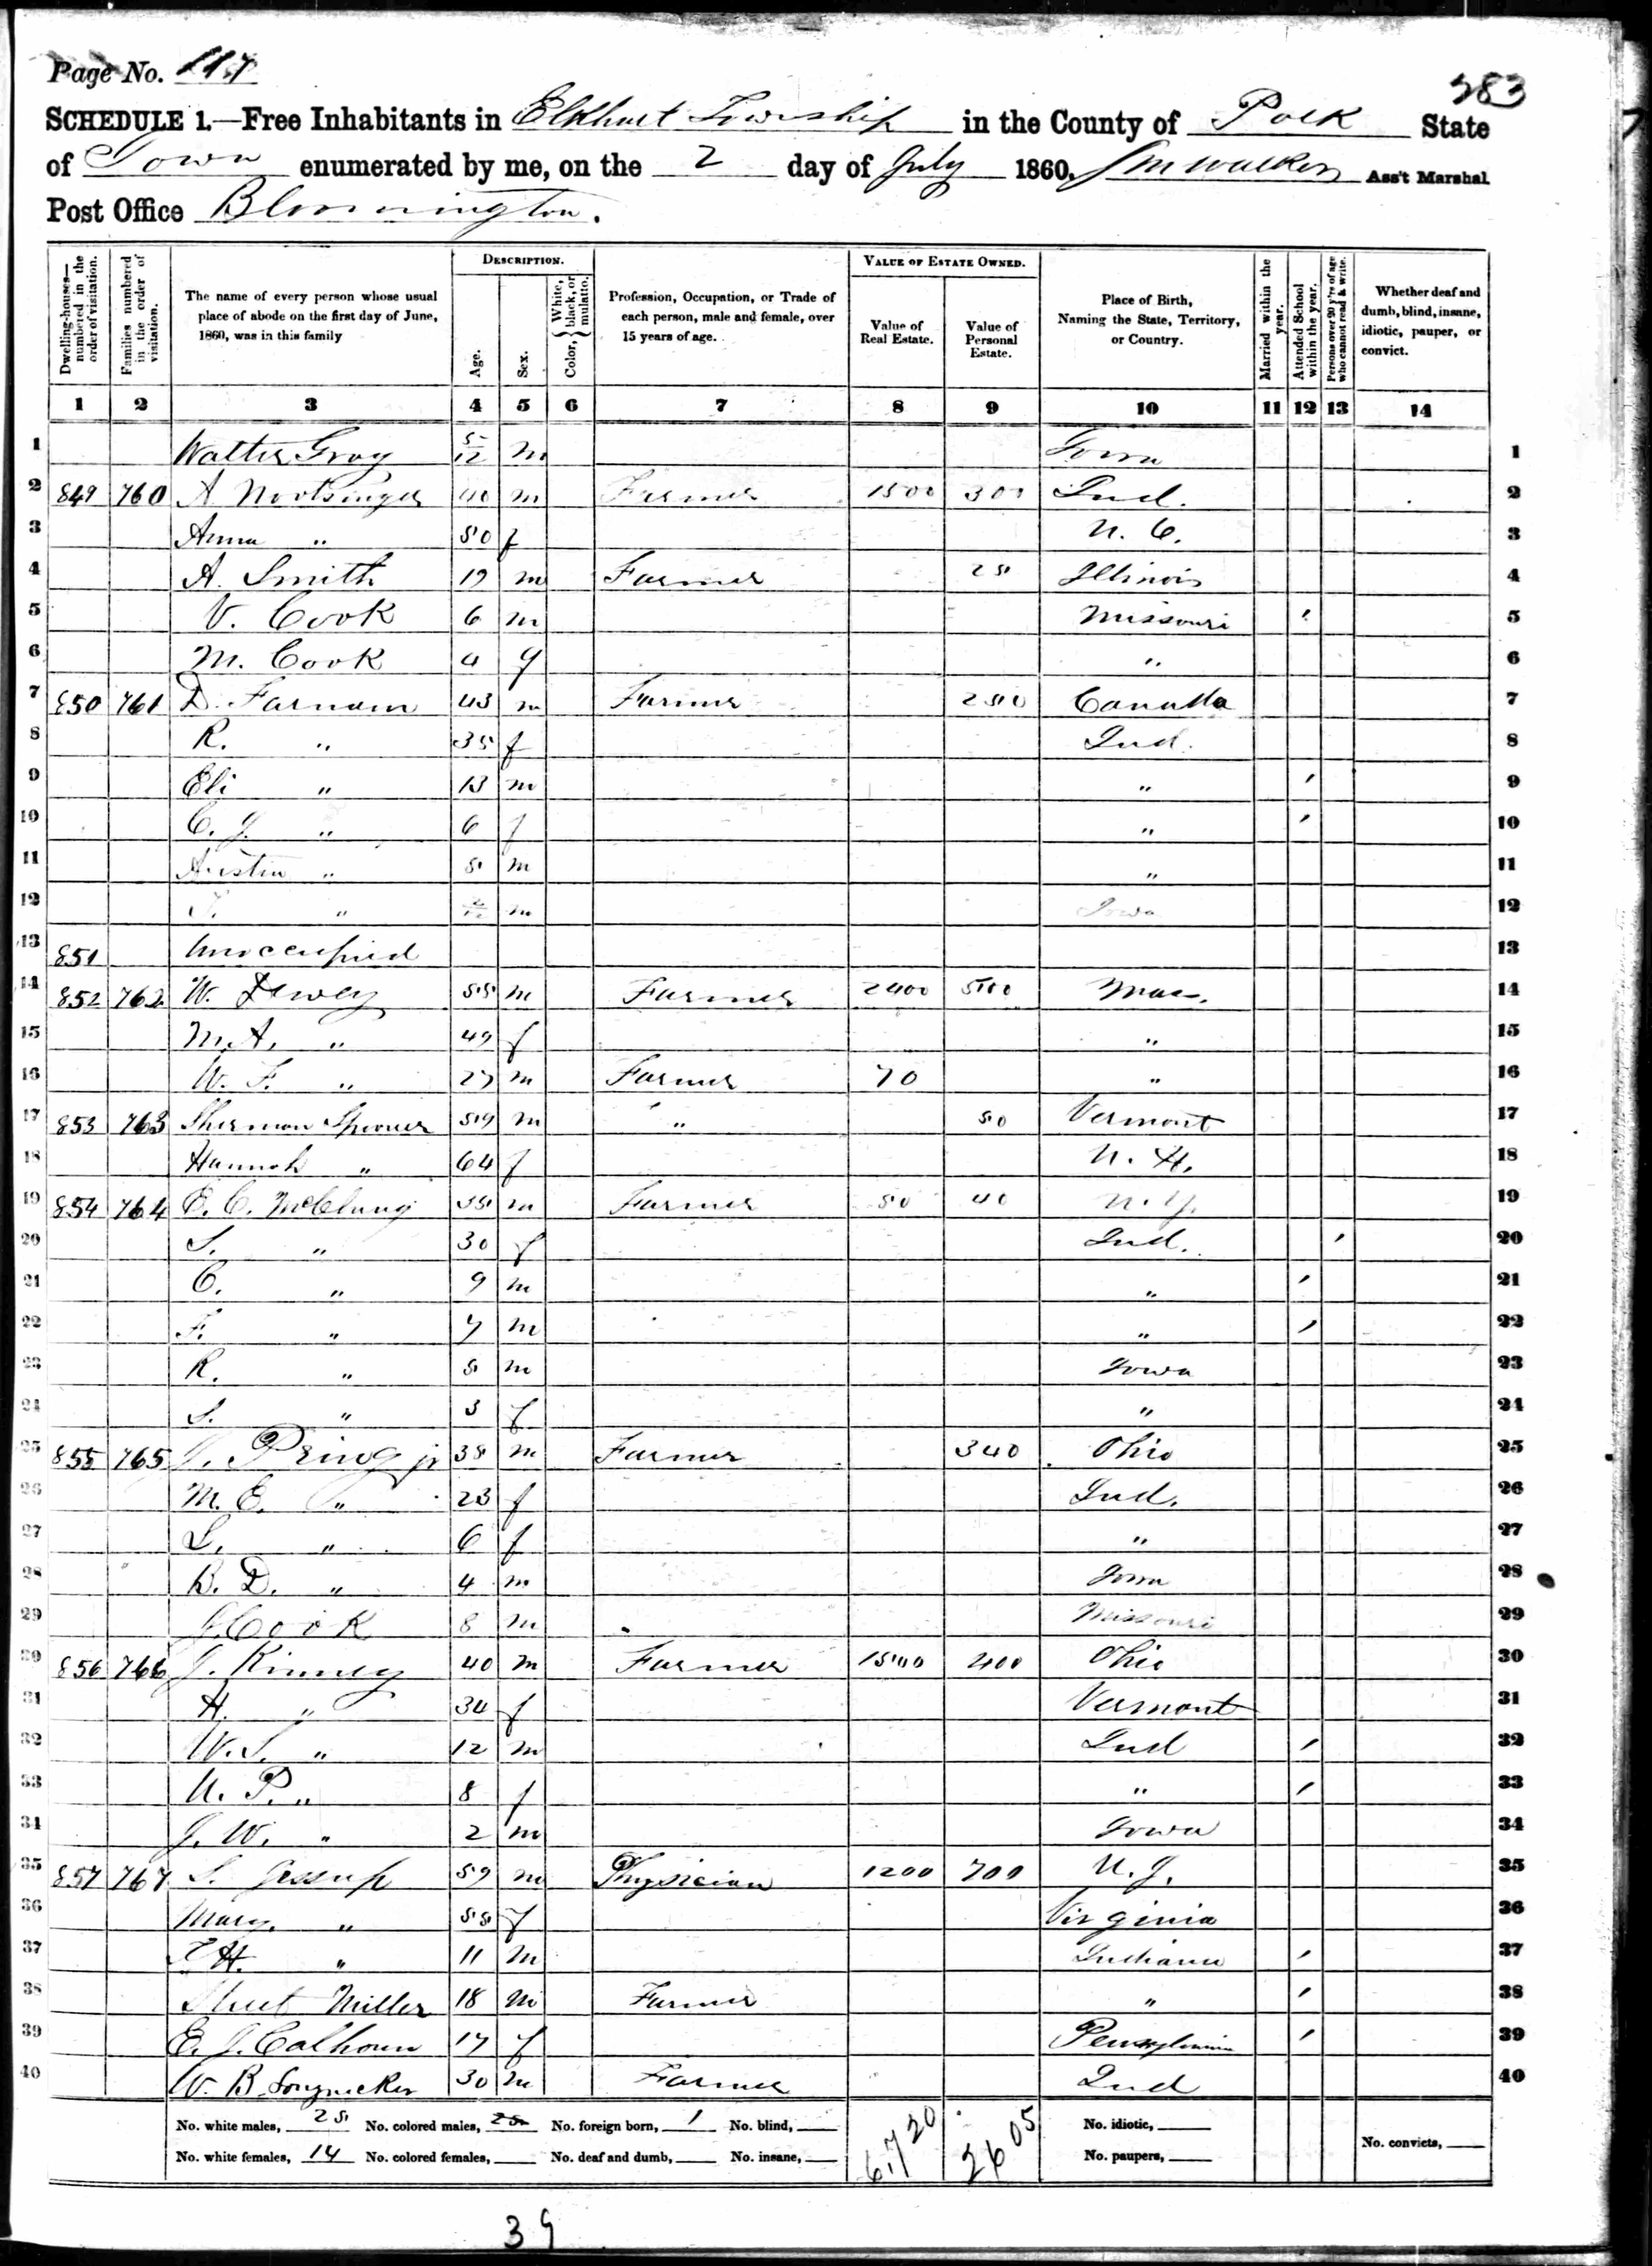 Page No. 117
383
SCHEDULE 1.—Free Inhabitants in Elkhart Township in the County of Polk State
of Iowa enumerated by me, on the 2 day of July 1860. J M Walker Ass't Marshal
Post Office Bloomington.
Dwelling-houses—numbered in the order of visitation.
Families numbered in the order of visitation.
The name of every person whose usual place of abode on the first day of June, 1860, was in this family
DESCRIPTION.
Age.
Sex.
Color, { White, black, or mulatto.
Profession, Occupation, or Trade of each person, male and female, over 15 years of age.
VALUE OF ESTATE OWNED.
Value of Real Estate.
Value of Personal Estate.
Place of Birth, Naming the State, Territory, or Country.
Married within the year.
Attended School within the year.
Persons over 20 y'rs of age who cannot read & write.
Whether deaf and dumb, blind, insane, idiotic, pauper, or convict.
1 2 3 4 5 6 7 8 9 10 11 12 13 14
1 Walter Gray 5/12 m Iowa 1
2 849 760 A Nootsinger 40 m Farmer 1500 300 Ind. 2
3 Anna " 50 f N. C. 3
4 A. Smith 19 m Farmer 25 Illinois 4
5 V. Cook 6 m Missouri ' 5
6 M. Cook 4 f " 6
7 850 761 D. Farnam 43 m Farmer 250 Canada 7
8 R. " 35 f Ind. 8
9 Eli " 13 m " ' 9
10 C. J. " 6 f " ' 10
11 Austin " 5 m " 11
12 " m Iowa 12
13 851 Unoccupied 13
14 852 762 W. Dewey 55 m Farmer 2400 500 Mass. 14
15 M. A. " 49 f " 15
16 W. F. " 27 m Farmer 70 " 16
17 853 763 Sherman Spooner 59 m " 50 Vermont 17
18 Hannah " 64 f N. H. 18
19 854 764 E. C. McClung 35 m Farmer 50 40 N. Y. 19
20 S. " 30 f Ind. ' 20
21 C. " 9 m " ' 21
22 F. " 7 m " ' 22
23 R. " 5 m Iowa 23
24 S. " 3 f " 24
25 855 765 J. Pring jr 38 m Farmer 340 Ohio 25
26 M. E. " 23 f Ind. 26
27 L. " 6 f " 27
28 B. D. " 4 m Iowa 28
29 J. Cook 8 m Missouri 29
30 856 766 J. Kinney 40 m Farmer 1500 400 Ohio 30
31 H. " 34 f Vermont 31
32 W. S. " 12 m Ind ' 32
33 U. P. " 8 f " ' 33
34 J. W. " 2 m Iowa 34
35 857 767 S. Jessup 59 m Physician 1200 700 N. J. 35
36 Mary " 55 f Virginia 36
37 T H. " 11 m Indiana ' 37
38 Miller 18 m Farmer " ' 38
39 E. J. Calhoun 17 f Pennsylvania ' 39
40 W. B. 30 m Farmer Ind 40
No. white males, 25 No. colored males, 25 No. foreign born, 1 No. blind, 6,720 2605 No. idiotic,
No. white females, 14 No. colored females, No. deaf and dumb, No. insane, No. paupers, No. convicts,
39